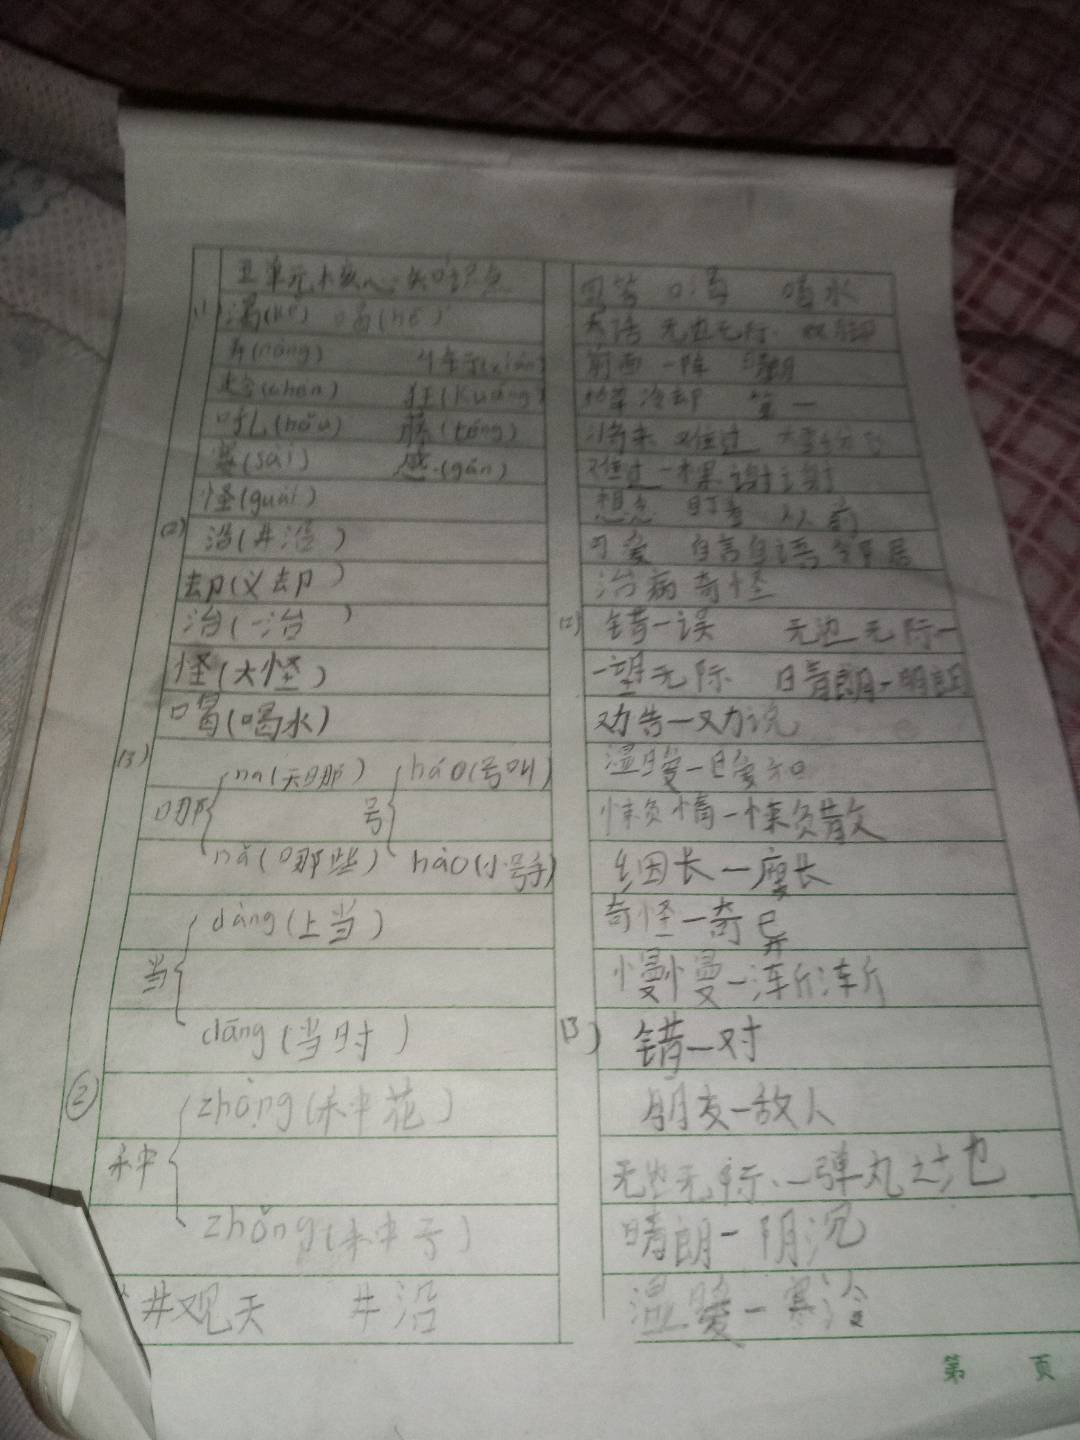 五单元核心知识点
(1) 渴(kě) 喝(hē)
弄(nòng)
趁(chèn) 狂(kuáng)
吼(hǒu) 疼(téng)
赛(sài) 感(gǎn)
怪(guài)
(2) 沿(井沿)
却(义却)
治(一治)
怪(大怪)
喝(喝水)
(3) na(天哪) háo(号叫)
哪 号
nǎ(哪些) hào(小号手)
dàng(上当)
当
dāng(当时)
② zhòng(种花)
种
zhǒng(种号)
井观天 井沿
口渴 喝水
大话 无边无际
前面 一阵 晴朗
冷却 第一
将来 难过
难过 一棵 谢谢
想念 盯着 从前
可爱 自言自语 邻居
治病 奇怪
(2) 错—误 无边无际—
一望无际 晴朗—明朗
劝告—劝说
温暖—暖和
懒惰—懒散
细长—瘦长
奇怪—奇异
慢慢—渐渐
(3) 错—对
朋友—敌人
无边无际—弹丸之地
晴朗—阴沉
温暖—寒冷
第 页